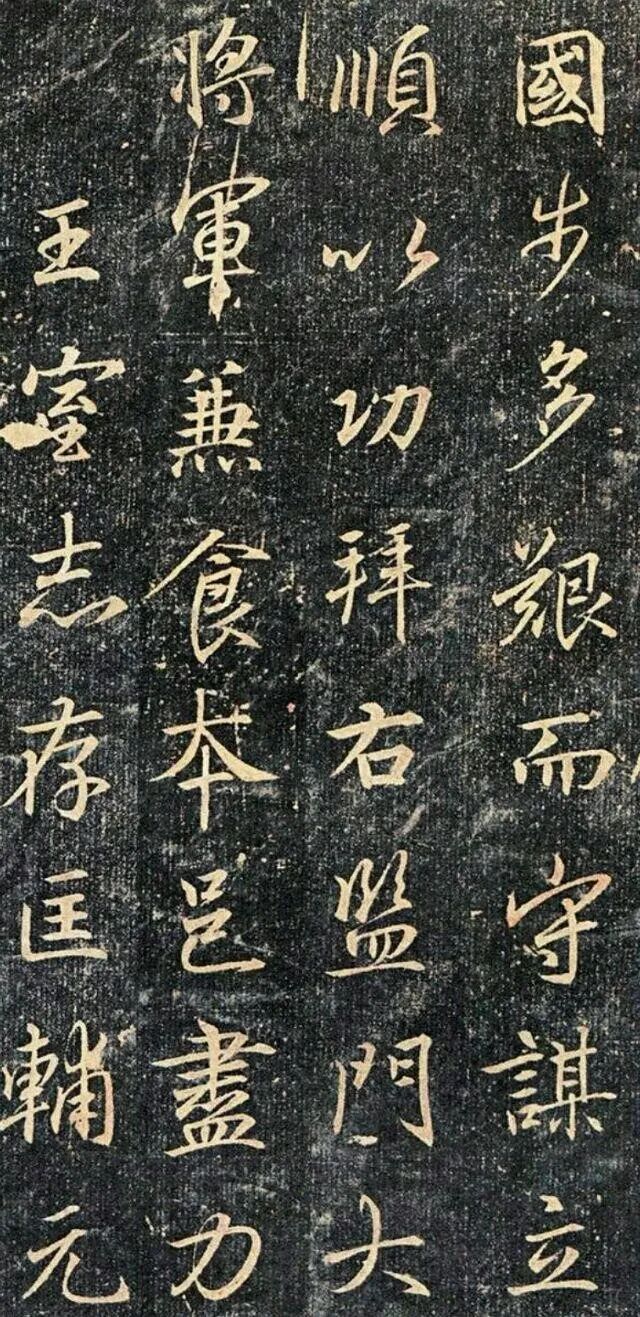 國步多艱而守謀立
順以功拜右監門大
將軍兼食本邑盡力
王室志存匡輔元